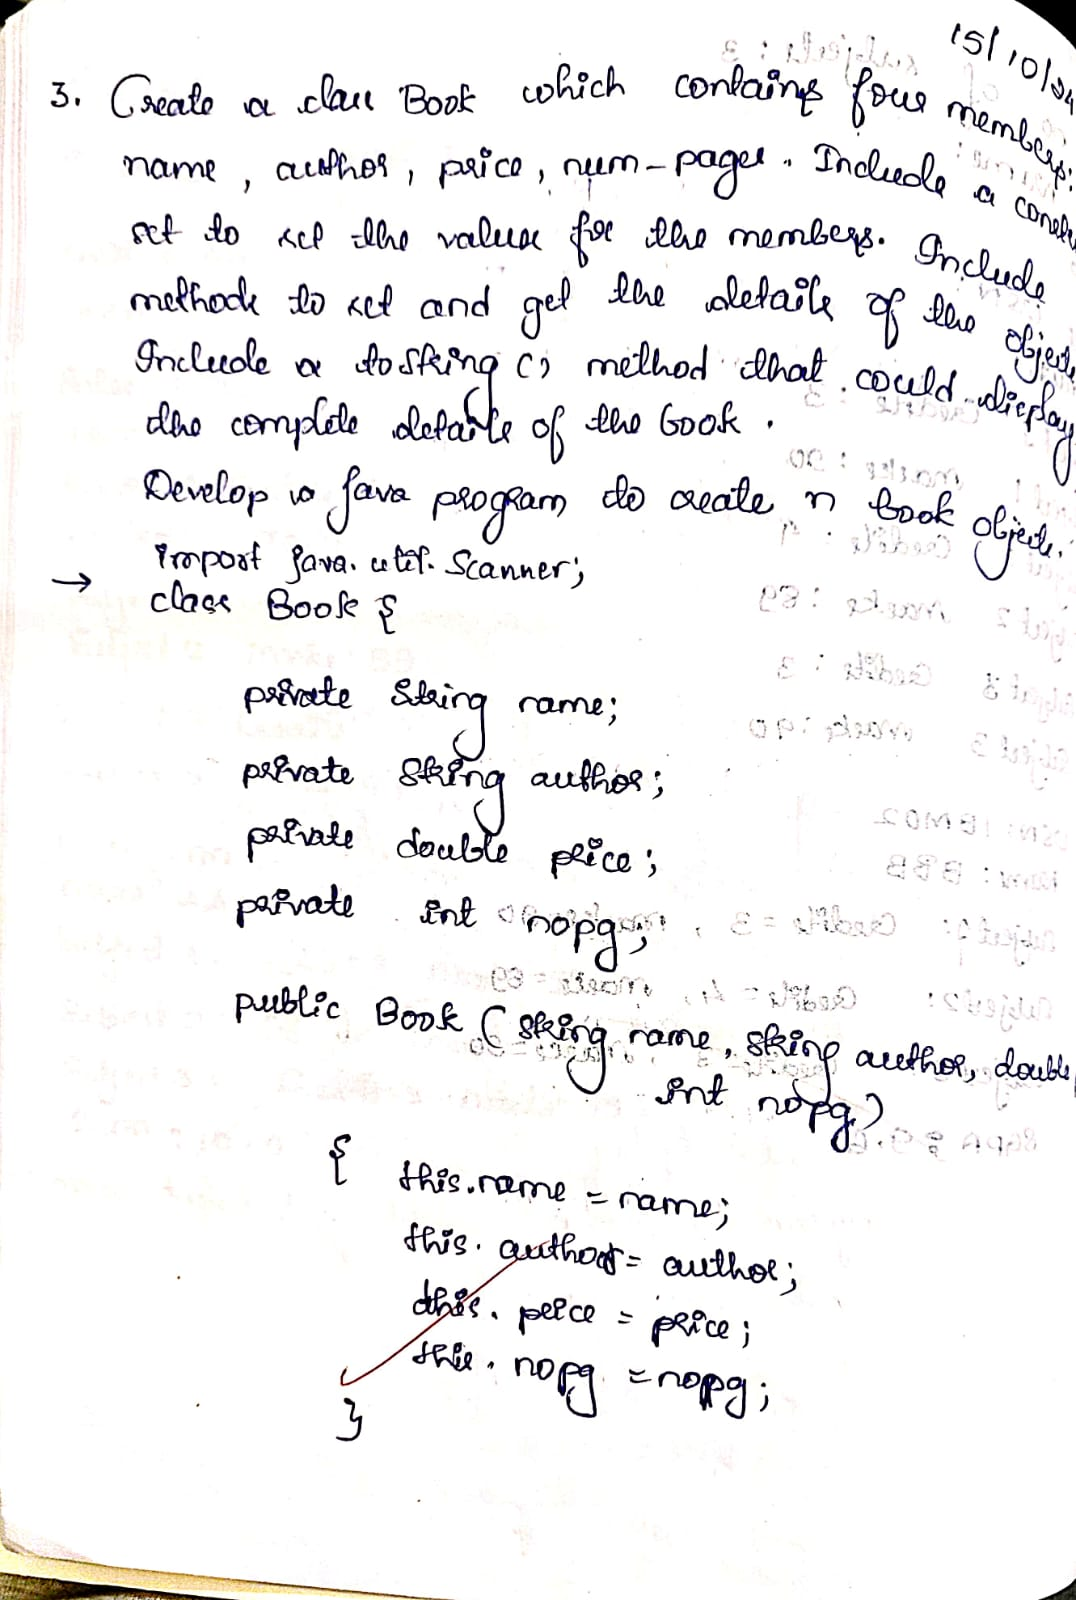 15/10/24
3. Create a class Book which contains four members:
name, author, price, num-pages. Include a
set to set the values for the members. Include
methods to set and get the details of the objects
Include a toString() method that could display
the complete details of the book.
Develop a Java program to create n book objects.
→ import java.util.Scanner;
class Book {
private String name;
private String author;
private double price;
private int nopg;
public Book (String name, String author, double
int nopg)
{ this.name = name;
this.author = author;
this.price = price;
this.nopg = nopg;
}